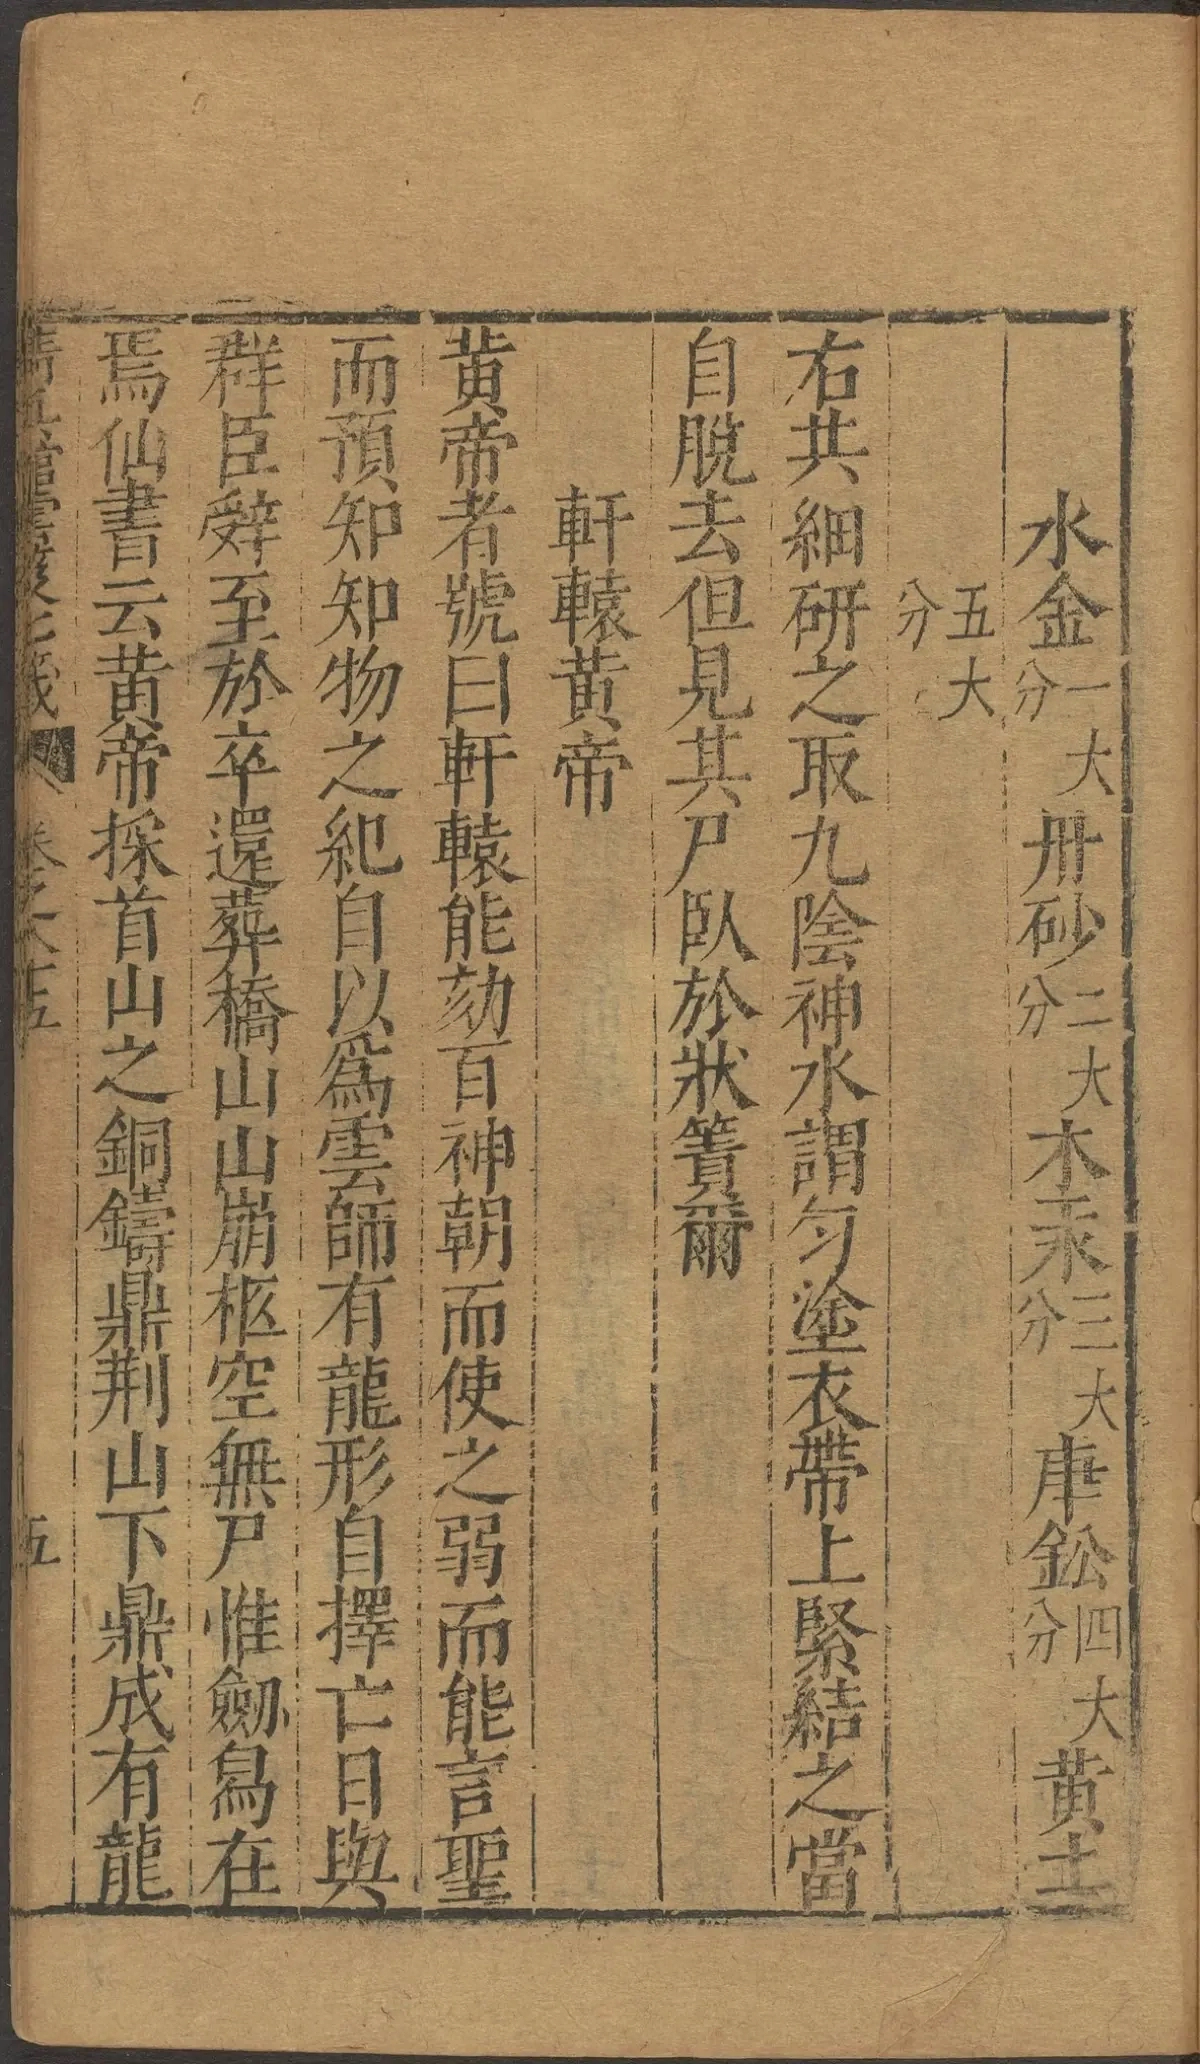 水金一大分丹砂二大分木汞三大分庚鈆四大分黃土
五大分
右共細研之取九陰神水謂勻塗衣帶上緊結之當
自脫去但見其尸臥於狀簀爾
軒轅黃帝
黃帝者號曰軒轅能劾百神朝而使之弱而能言聖
而預知知物之紀自以為雲師有龍形自擇亡日與
群臣辤至於卒還葬橋山山崩柩空無尸惟劒舄在
焉仙書云黃帝採首山之銅鑄鼎荆山下鼎成有龍
卷之六 五